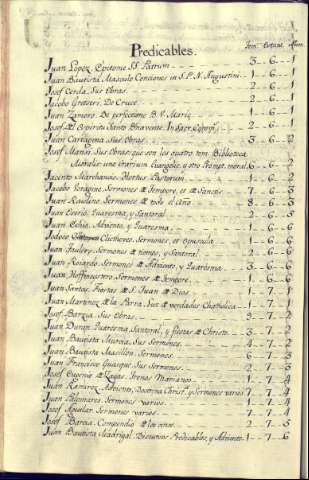 Predicables.
Tom. Estant. Num.
Juan Lopez, Epitome SS. Patrum 3 - 6 - 1
Juan Bautista Masculo Conciones in S.P.N. Augustini 1 - 6 - 1
Josef Cerda, Sus Obras 2 - 6 - 1
Jacobo Gretseri, De Cruce 2 - 6 - 1
Juan De perfectione B.V. Mariæ 1 - 6 - 1
Josef Espiritu Santo 2 - 6 - 1
Juan Cartagena, Sus Obras 3 - 6 - 2
Josef Mansi, Sus Obras que son los quatro tom. Biblioteca
Moralis, une Erarium Evangelic. y otro Prompt. moral 6 - 6 - 2
Jacinto Marchancio, Hortus Pastorum 2 - 6 - 2
Jacobo Sermones de Tempore, et de Sanctis 7 - 6 - 3
Juan Raulino, Sermones de todo el año 8 - 6 - 3
Juan Quaresma, y Santoral 6 - 5
Juan Adviento, y Quaresma 1 - 6 - 6
Clictoveo, Sermones, et Opuscula 1 - 6 - 6
Juan Sermones de tiempo, y Santoral 6 - 6
Juan Sermones de Adviento, y Quaresma 3 - 6 - 6
Juan Sermones de Tempore 1 - 6 - 6
Juan Santos, Fiestas de S. Juan de Dios 1 - 7 - 1
Juan Martinez de la Parra, Luz de verdades Chatholicas 1 - 7 - 1
Josef Barzia, Sus Obras 9 - 7 - 2
Juan Quaresma, Santoral, y fiestas de Christo 3 - 7 - 2
Juan Bautista Murcia, Sus Sermones 4 - 7 - 2
Juan Bautista Masillon, Sermones 6 - 7 - 3
Juan Francisco Sus Sermones 2 - 7 - 3
Josef 1 - 7 - 4
Juan Ramirez, Adviento, Doctrina Christ. y Sermones varios 7 - 7 - 4
Juan Palomares, Sermones varios 4 - 7 - 4
Josef Aguilar, Sermones varios 7 - 7 - 4
Josef Barcia, Compendio de los once 2 - 7 - 5
Juan Bautista Madrigal, Discursos Predicables, y Adviento 1 - 7 - 6